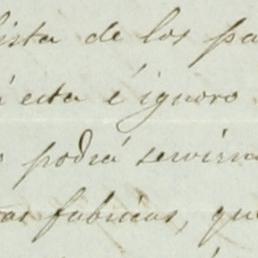 lista de los pa
á esta é ignoro
podrá servirm
tas fabricas, qu